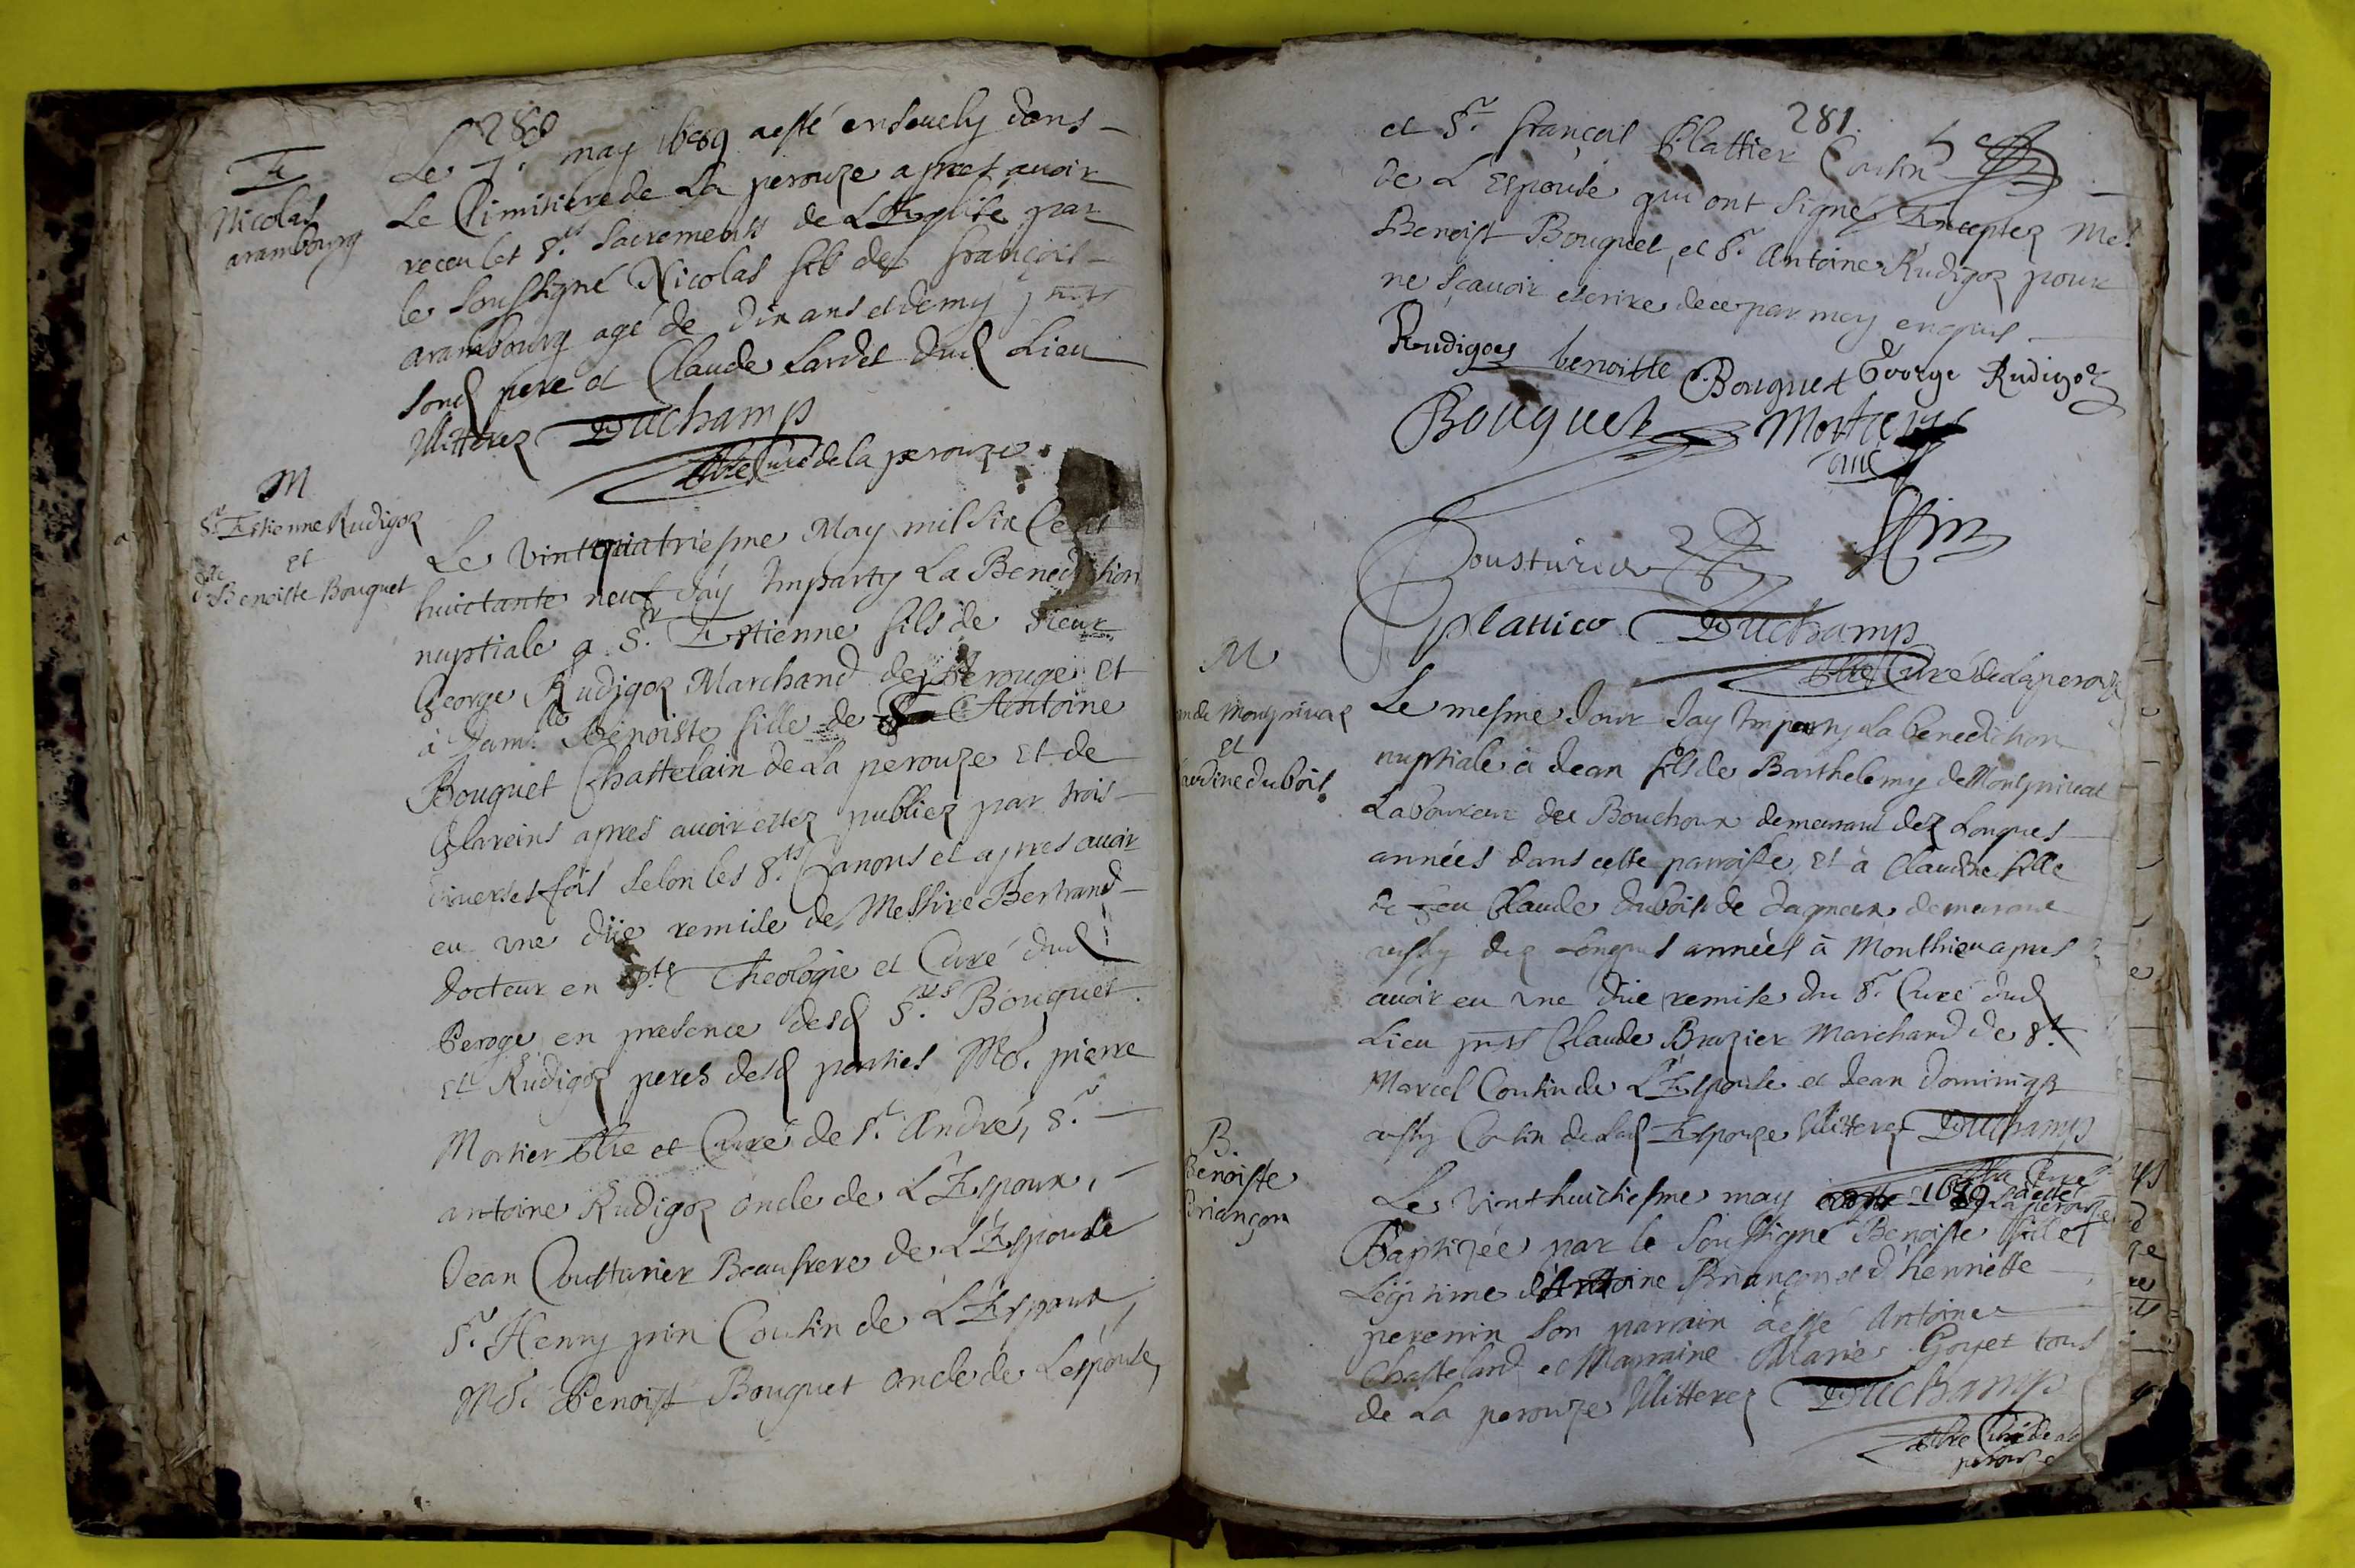 280
E
Nicolas
arambourg
Le 7e. may 1689 a esté ensevely dans
le Cimitiere de La perouze apres avoir
receu les Sts. Sacrements de L'Eglise par
le soussigné Nicolas fils de françois
arambourg agé de dix ans et demy pnts
sond pere et Claude Lardet dud Lieu
illitterez Duchamp
pbre Curé de la perouze
M
Sr. Estienne Rudigoz
et
dlle Benoiste Bouquet
Le vintquatriesme May mil six Cent
huictante neuf j'ay Imparty La Benediction
nuptiale a Sr. Estienne fils de Sieur
George Rudigoz Marchand de Perouge et
à Damlle Benoiste fille de Sr Antoine
Bouquet Chastelain de La perouze Et de
Glareins apres avoir estez publiez par trois
diverses fois selon les Sts Canons et apres avoir
eu une düe remise de Messire Bertrand
docteur en Ste Theologie et Curé dud
Peroge en presence desd Srs Bouquet
Et Rudigoz peres desd parties Me. pierre
Mortier pbre et Curé de St. André, Sr.
antoine Rudigoz oncle de L'Espoux,
Jean Cousturier Beaufrere de L'Espouse
Sr. Henry prin Cousin de L'Espoux,
Me. Benoist Bouquet oncle de Lespouse,
281
et Sr. françois Plattier Cousin
de L'Espouse qui ont signé, Exceptez Me.
Benoist Bouquet, et Sr. Antoine Rudigoz pour
ne sçavoir escrire de ce par moy enquis
Rudigoz benoitte Bouquet George Rudigoz
Bouquet Mortier
curé
Cousturier Prin
plattier Duchamp
pbre Curé de Laperouze
M
Montgrivat
et
Claudine dubois
Le mesme Jour Jay Imparty La benediction
nuptiale à Jean fils de Barthelemy de Montgrivat
Laboureur des Bouchoux demeurant dez Longues
années dans cette parroisse, Et à Claudine fille
de feu Claude dubois de dagneux demeurant
aussy dez Longues années à Monthieu apres
avoir eu une düe remise du Sr. Curé dud
Lieu pnts Claude Brazier Marchand de St.
Marcel Cousin de L'Espouse et Jean dominique
aussy Cousin de Lad Espouze Illitterez Duchamp
pbre Curé
de La perouze
B.
Benoiste
Briançon
Le vinthuictiesme may 1689 a esté
Baptizée par le soussigné Benoiste fille
Légitime d'Antoine Briançon et d'henriette
perenin son parrain a esté Antoine
Chasteland et Marraine Marie Goyet tous
de La perouze Illitterez Duchamp
pbre Curé de la
perouze